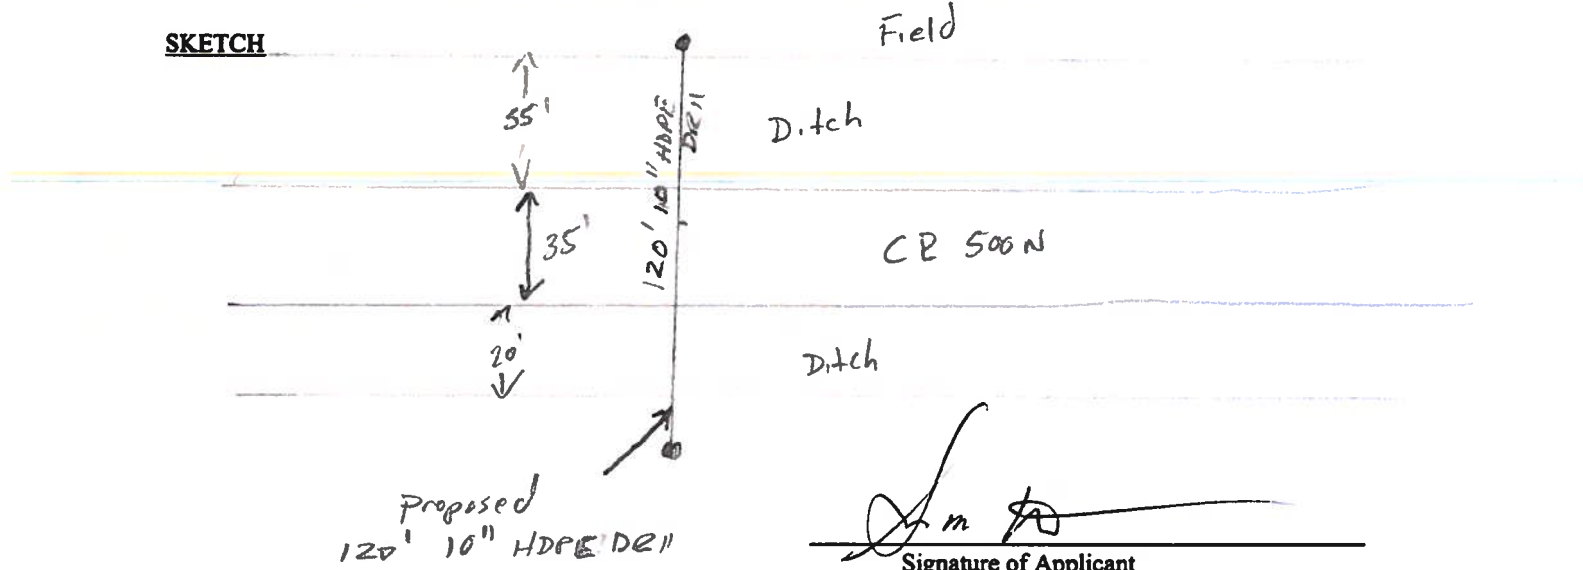 SKETCH
Field
55'
Ditch
120' 10" HDPE
DRII
35'
CR 500 N
20'
Ditch
Proposed
120' 10" HDPE DRII
Signature of Applicant